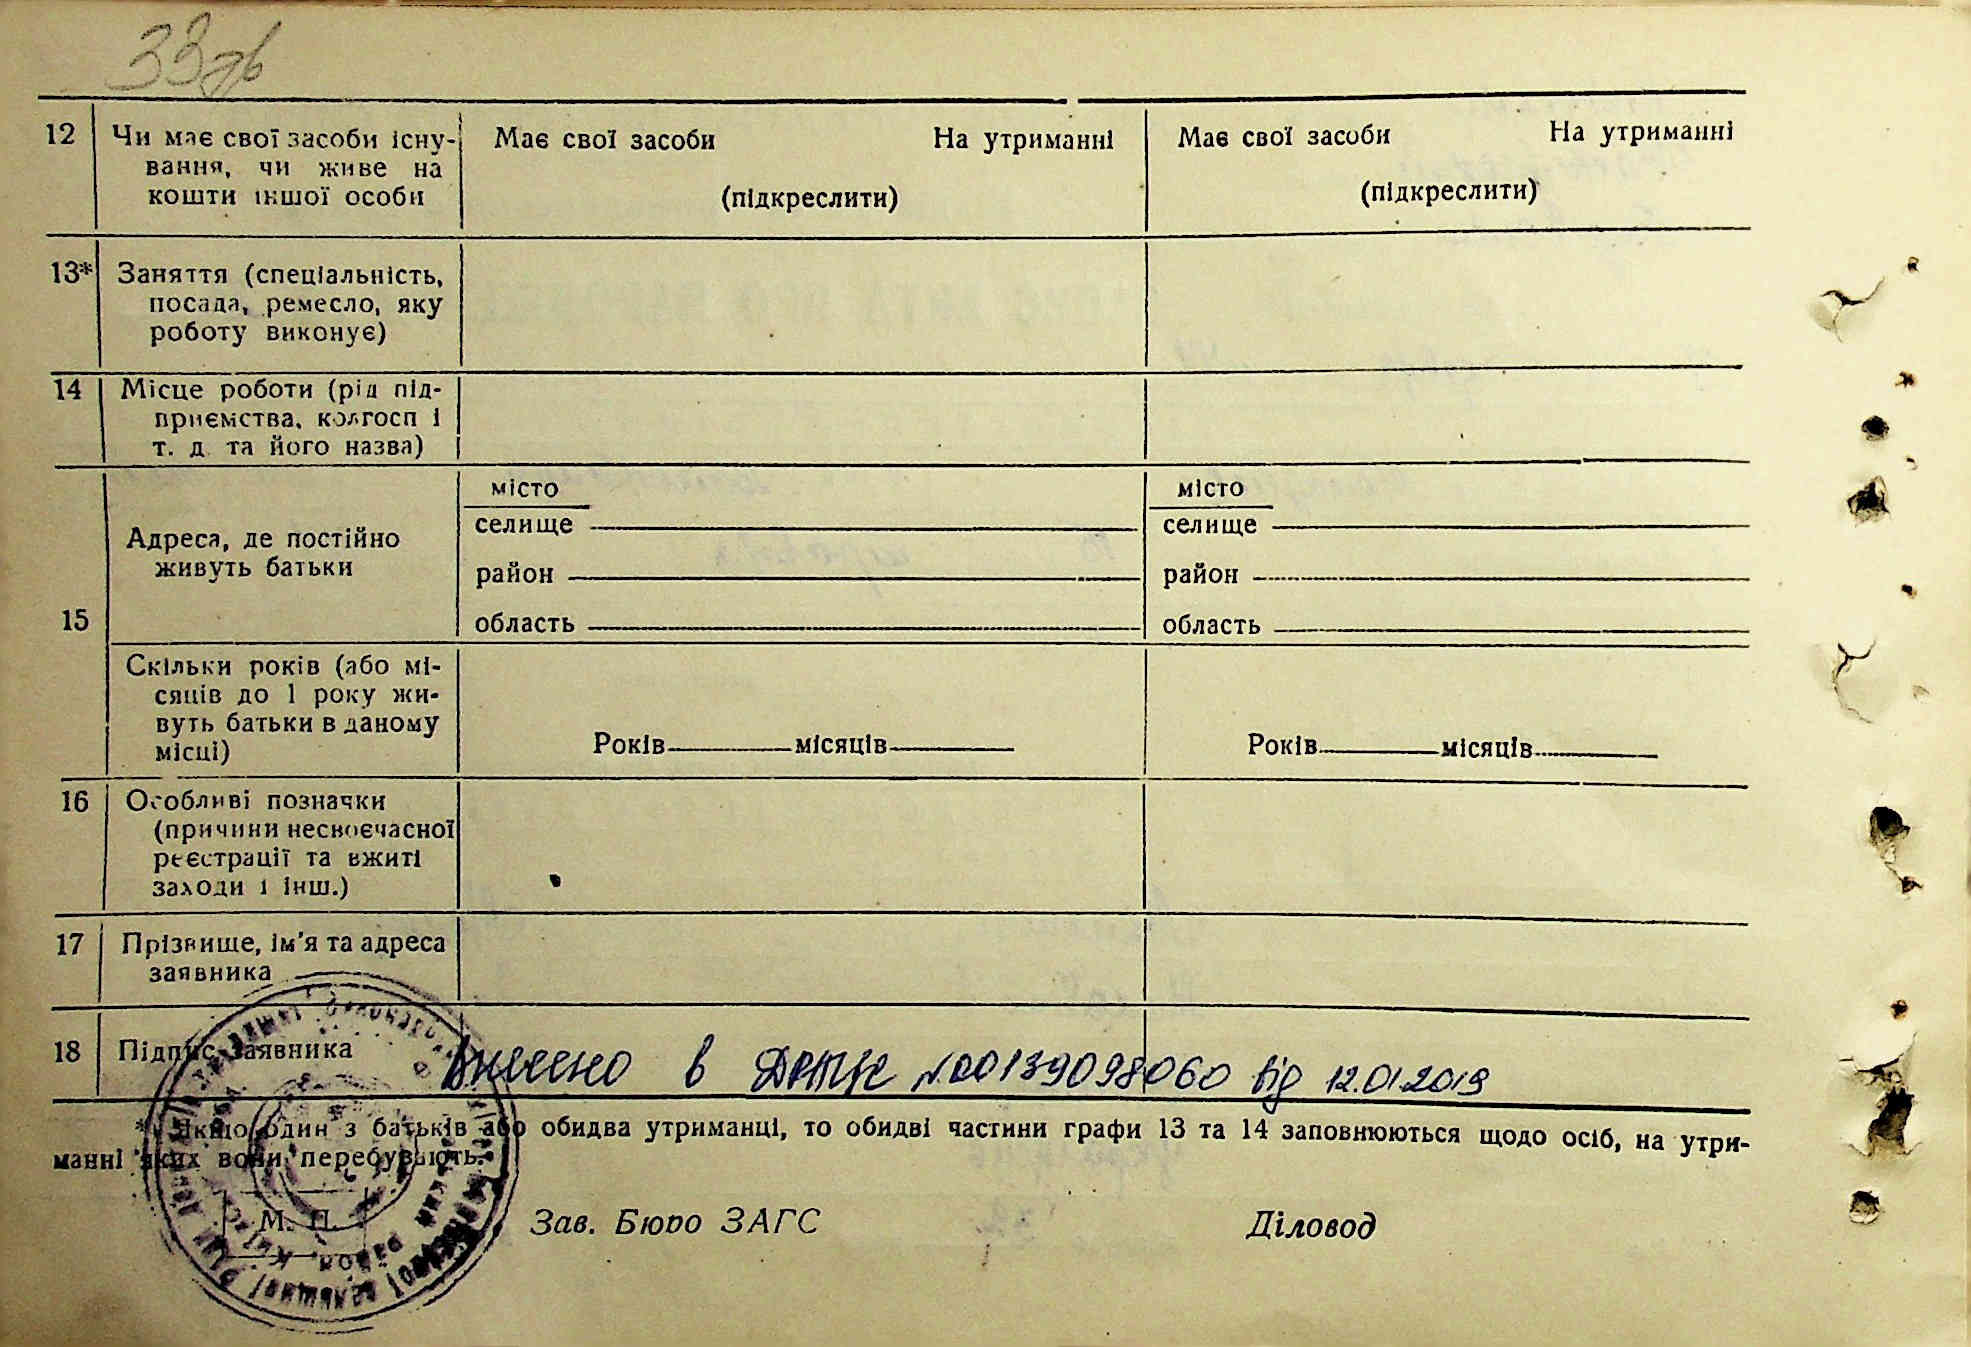 33
12 Чи має свої засоби існу- Має свої засоби На утриманні Має свої засоби На утриманні
вання, чи живе на
кошти іншої особи (підкреслити) (підкреслити)
13* Заняття (спеціальність,
посада, ремесло, яку
роботу виконує)
14 Місце роботи (рід під-
приємства, колгосп і
т. д. та його назва)
15
Адреса, де постійно
живуть батьки
місто
селище
район
область
місто
селище
район
область
Скільки років (або мі-
сяців до 1 року жи-
вуть батьки в даному
місці)
Років місяців Років місяців
16 Особливі позначки
(причини несвоєчасної
реєстрації та вжиті
заходи і інш.)
17 Прізвище, ім'я та адреса
заявника
18 Підпис заявника
Внесено в №00139098060 від 12.01.2019
* Якщо один з батьків або обидва утриманці, то обидві частини графи 13 та 14 заповнюються щодо осіб, на утри-
манні яких вони перебувають.
М. П. Зав. Бюро ЗАГС Діловод